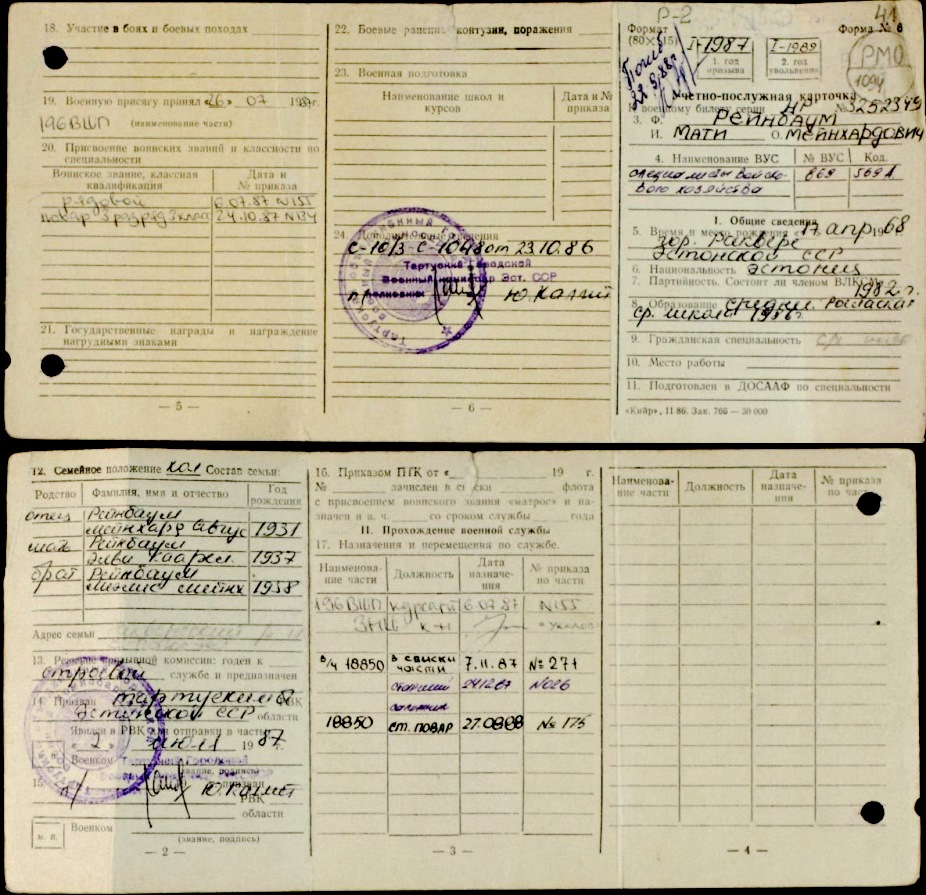 18. Участие в боях и боевых походах
19. Военную присягу принял «26» 07 1987г.
196 ВШП (наименование части)
20. Присвоение воинских званий и классности по
специальности
Воинское звание, классная
квалификация
Дата и
№ приказа
рядовой 6.07.87 N155
повар 3 разряд 3 класс 24.10.87 N134
21. Государственные награды и награждение
нагрудными знаками
— 5 —
22. Боевые ранения, контузии, поражения
23. Военная подготовка
Наименование школ и
курсов
Дата и №
приказа
24. Дополнительные сведения
С-10/3-С-1048 от 23.10.86
Тартуский Городской
Военный комиссар Эст. ССР
полковник Ю. Каллит
— 6 —
Р-2
41
Формат
(80×115)
Форма № 6
I-1987
1. год
призыва
I-1989
2. год
увольнения
РМО
1094
Погиб
22.9.88г.
Учетно-послужная карточка
К военному билету серии НР № 3252349
3. Ф. РЕЙНБАУМ
И. МАТИ О. МЕЙНХАРДОВИЧ
4. Наименование ВУС № ВУС Код.
специалисты войско-
вого хозяйства
869 569 А
I. Общие сведения
5. Время и место рождения «17» апр 1968
гор. Раквере
Эстонской ССР
6. Национальность эстонец
7. Партийность. Состоит ли членом ВЛКСМ 1982 г.
8. Образование средн.
ср. школа 1986г
9. Гражданская специальность
10. Место работы
11. Подготовлен в ДОСААФ по специальности
«Кийр», 11 86. Зак. 766 — 30 000
12. Семейное положение хол Состав семьи:
Родство Фамилия, имя и отчество Год
рождения
отец Рейнбаум
Мейнхард Авгус 1931
мать Рейнбаум
Элви Каарел. 1937
брат Рейнбаум
мейнх 1958
Адрес семьи
13. Решение призывной комиссии: годен к
строевой службе и предназначен
14. Призван Тартуским РВК
Эстонской ССР области
Явился в РВК для отправки в часть
«2» июля 1987 г.
Военком Тартуский Городской
(звание, подпись)
Ю. Каллит
15. призван
РВК
области
м. п. Военком
(звание, подпись)
— 2 —
16. Приказом ПТК от « 19 г.
№ зачислен в списки флота
с присвоением воинского звания «матрос» и на-
значен в в. ч. со сроком службы года
II. Прохождение военной службы
17. Назначения и перемещения по службе.
Наименова-
ние части
Должность
Дата
назначе-
ния
№ приказа
по части
196 ВШП курсант 6.07.87 N155
в/ч 18850 в списки
части 7.11.87 № 271
старший
24.12.87 №026
18850 ст. повар 27.08.88 № 175
— 3 —
Наименова-
ние части
Должность
Дата
назначе-
ния
№ приказа
по части
— 4 —